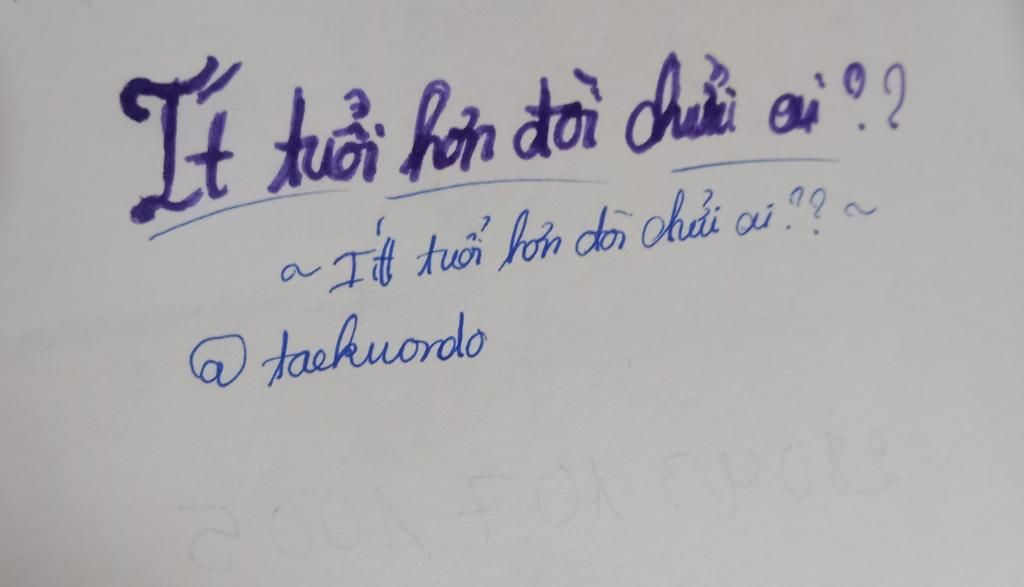 Ít tuổi hơn đòi chửi ai??
~ Ítt tuổi hơn đòi chửi ai?? ~
@taekuondo